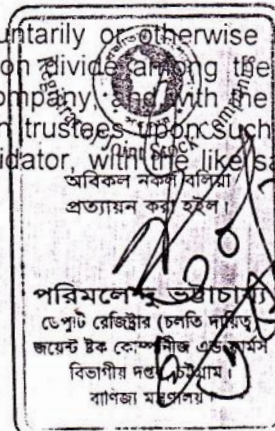 untarily or otherwise
on divide among the
ompany, and with the
n trustees upon such
idator, with the like s
Registrar of Joint Stock Companies
অবিকল নকল বলিয়া
প্রত্যায়ন করা হইল।
পরিমলেন্দু ভট্টাচার্য্য
ডেপুটি রেজিষ্ট্রার (চলতি দায়িত্ব)
জয়েন্ট ষ্টক কোম্পানীজ এন্ড ফার্মস
বিভাগীয় দপ্তর, চট্টগ্রাম।
বাণিজ্য মন্ত্রণালয়।